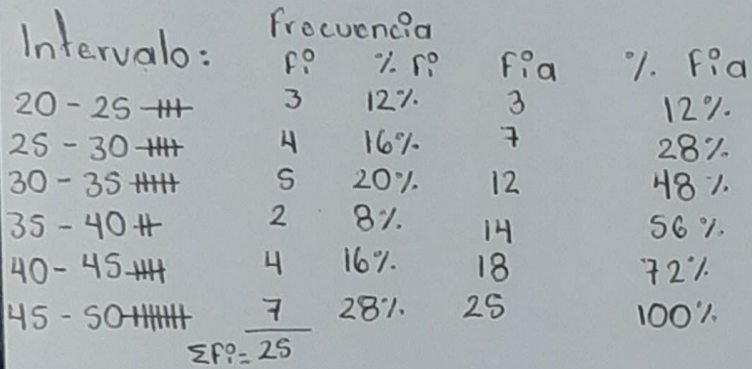 Frecuencia
Intervalo: fi % fi fia % fia
20 - 25 3 12% 3 12%
25 - 30 4 16% 7 28%
30 - 35 5 20% 12 48%
35 - 40 2 8% 14 56%
40 - 45 4 16% 18 72%
45 - 50 7 28% 25 100%
Σfi = 25